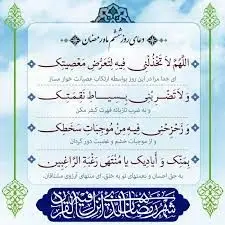 دعای روز ششم ماه رمضان
اللَّهُمَّ لاَ تَخْذُلْنِي فِيهِ لِتَعَرُّضِ مَعْصِيَتِكَ
ای خدا مرا در این روز بواسطه ارتکاب عصیانت خوار مساز
وَ لاَ تَضْرِبْنِي بِسِيَاطِ نَقِمَتِكَ
و به ضرب تازیانه قهرت کیفر مکن
وَ زَحْزِحْنِي فِيهِ مِنْ مُوجِبَاتِ سَخَطِكَ
و از موجبات خشم و غضبت دور گردان
بِمَنِّكَ وَ أَيَادِيكَ يَا مُنْتَهَى رَغْبَةِ الرَّاغِبِينَ
به حق احسان و نعمتهای تو به خلق، ای منتهای آرزوی مشتاقان.
شَهْرُ رَمَضَانَ الَّذِي أُنْزِلَ فِيهِ الْقُرْآنُ